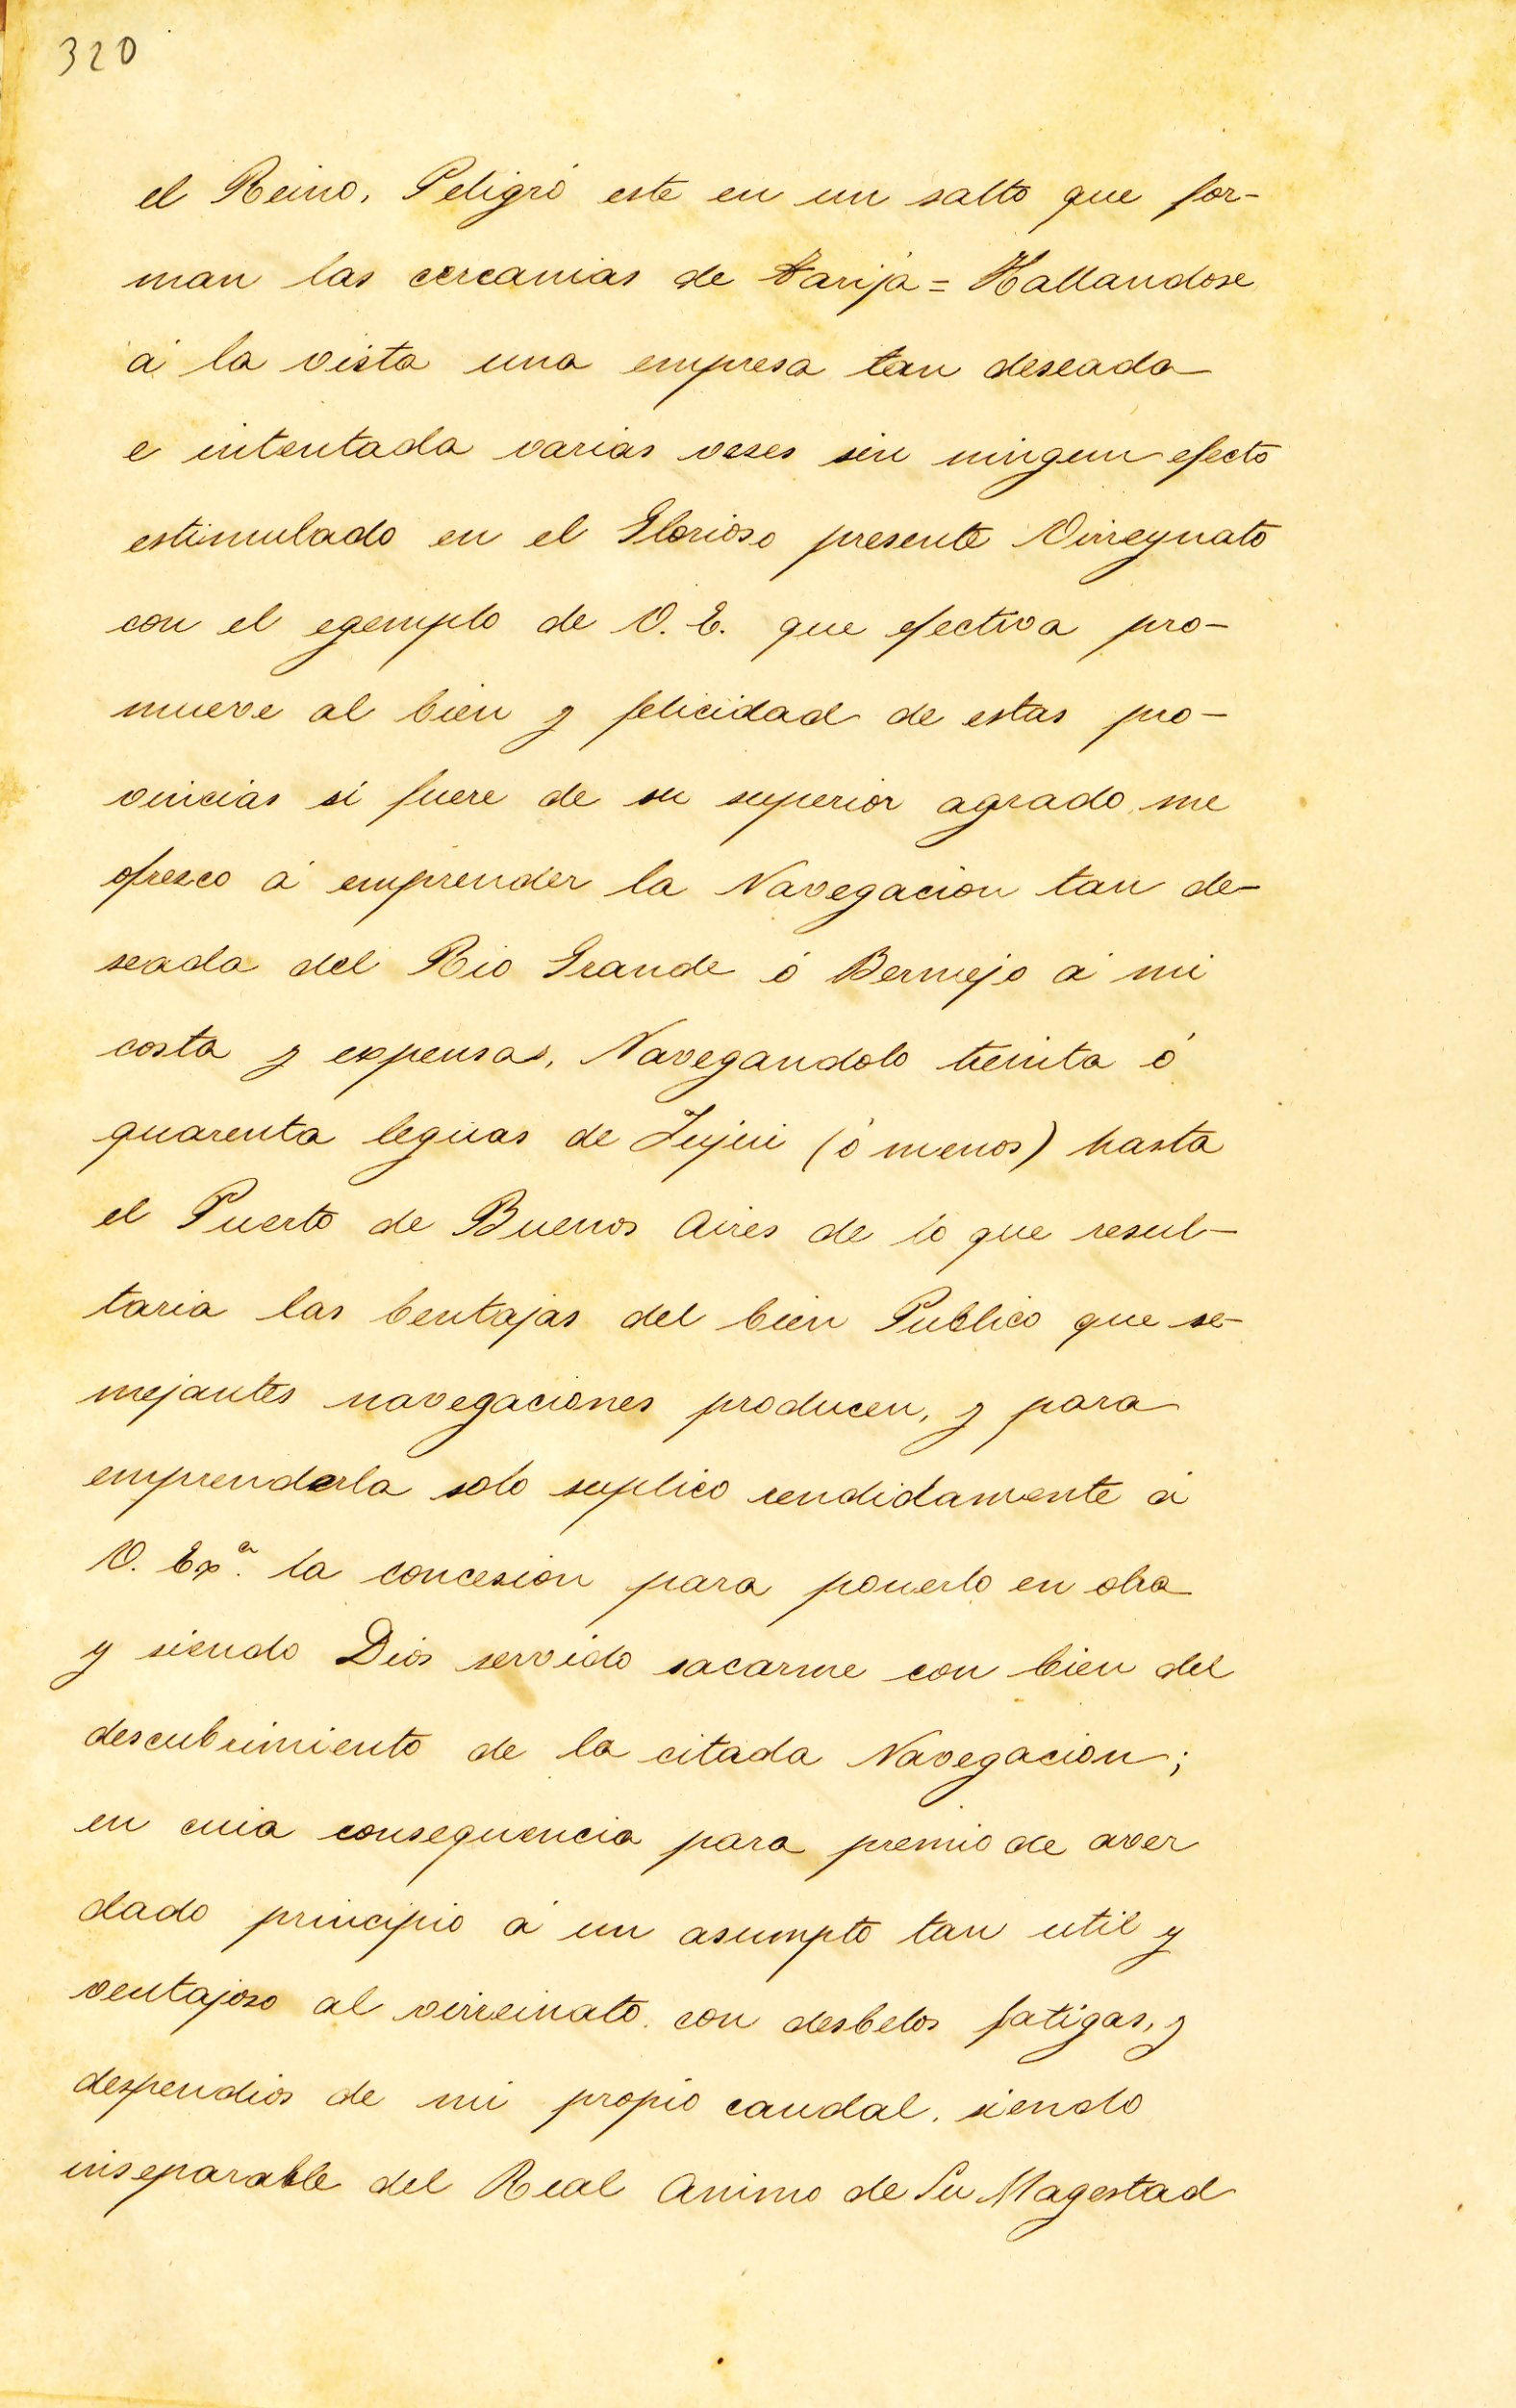 320
el Reino, Peligró este en un salto que for-
man las cercanias de tarija = Hallandose
á la vista una empresa tan deseada
e intentada varias veses sin ningun efecto
estimulado en el Glorioso presente Virreynato
con el egemplo de V. E. que efectiva pro-
mueve al bien y felicidad de estas pro-
vincias si fuere de su superior agrado me
ofresco á emprender la Navegacion tan de-
seada del Rio Grande ó Bermejo á mi
costa y expensas, Navegandolo treinta ó
quarenta leguas de Jujui (ó menos) hasta
el Puerto de Buenos Aires de lo que resul-
taria las bentajas del bien Publico que se-
mejantes navegaciones producen, y para
emprenderla solo suplico rendidamente á
V. Exª. la concesion para ponerlo en obra
y siendo Dios servido sacarme con bien del
descubrimiento de la citada Navegacion;
en cuia consequencia para premio de aver
dado principio á un asumpto tan util y
ventajoso al virreinato. con desbelos fatigas, y
despendios de mi propio caudal, siendo
inseparable del Real Animo de Su Magestad